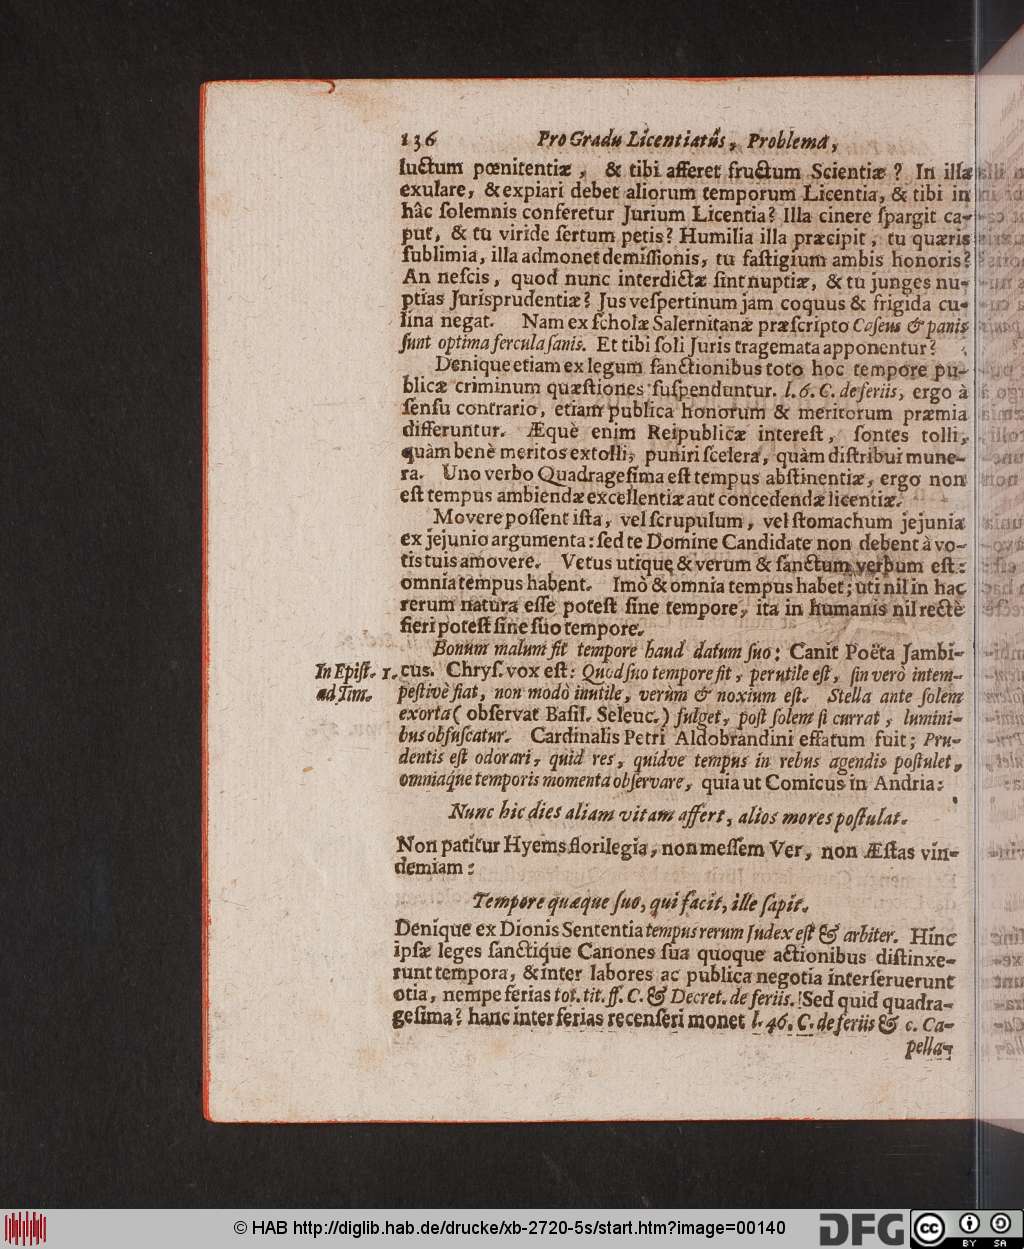 136 Pro Gradu Licentiatûs, Problema,
luctum pœnitentiæ, & tibi afferet fructum Scientiæ? In illa
exulare, & expiari debet aliorum temporum Licentia, & tibi in
hâc ſolemnis conferetur Jurium Licentia? Illa cinere ſpargit ca-
put, & tu viride ſertum petis? Humilia illa præcipit, tu quæris
ſublimia, illa admonet demiſſionis, tu faſtigium ambis honoris?
An neſcis, quod nunc interdictæ ſint nuptiæ, & tu junges nu-
ptias Jurisprudentiæ? Jus veſpertinum jam coquus & frigida cu-
lina negat. Nam ex ſcholæ Salernitanæ præſcripto Caſeus & panis
ſunt optima fercula ſanis. Et tibi ſoli Juris tragemata apponentur?
Denique etiam ex legum ſanctionibus toto hoc tempore pu-
blicæ criminum quæſtiones ſuſpenduntur. l. 6. C. de feriis, ergo à
ſenſu contrario, etiam publica honorum & meritorum præmia
differuntur. Æquè enim Reipublicæ intereſt, ſontes tolli,
quàm benè meritos extolli, puniri ſcelera, quàm diſtribui mune-
ra. Uno verbo Quadrageſima eſt tempus abſtinentiæ, ergo non
eſt tempus ambiendæ excellentiæ aut concedendæ licentiæ.
Movere poſſent iſta, vel ſcrupulum, vel ſtomachum jejunia
ex jejunio argumenta: ſed te Domine Candidate non debent à vo-
tis tuis amovere. Vetus utique & verum & ſanctum verbum eſt:
omnia tempus habent. Imò & omnia tempus habet; uti nil in hac
rerum natura eſſe poteſt ſine tempore, ita in humanis nil rectè
fieri poteſt ſine ſuo tempore.
Bonum malum fit tempore haud datum ſuo: Canit Poëta Jambi-
In Epiſt. 1. cus. Chryſ. vox eſt: Quod ſuo tempore fit, perutile eſt, ſin verò intem-
ad Tim. peſtivè fiat, non modò inutile, verùm & noxium eſt. Stella ante ſolem
exorta (obſervat Baſil. Seleuc.) fulget, poſt ſolem ſi currat, lumini-
bus obfuſcatur. Cardinalis Petri Aldobrandini effatum fuit; Pru-
dentis eſt odorari, quid res, quidve tempus in rebus agendis poſtulet,
omniaque temporis momenta obſervare, quia ut Comicus in Andria:
Nunc hic dies aliam vitam affert, alios mores poſtulat.
Non patitur Hyems florilegia, non meſſem Ver, non Æſtas vin-
demiam:
Tempore quæque ſuo, qui facit, ille ſapit.
Denique ex Dionis Sententia tempus rerum Judex eſt & arbiter. Hinc
ipſæ leges ſanctique Canones ſua quoque actionibus diſtinxe-
runt tempora, & inter labores ac publica negotia interſeruerunt
otia, nempe ferias tot. tit. ff. C. & Decret. de feriis. Sed quid quadra-
geſima? hanc inter ferias recenſeri monet l. 46. C. de feriis & c. Ca-
pella,
© HAB http://diglib.hab.de/drucke/xb-2720-5s/start.htm?image=00140
DFG
cc BY SA